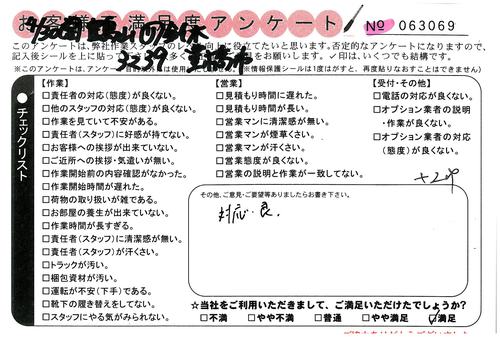 お客様満足度アンケート
No 063069
このアンケートは、弊社作業スタッフのレベル向上に役立てたいと思います。否定的なアンケートになりますので、
記入後シールを上に貼っ
をお願いします。✓印は、いくつでも結構です。
※このアンケートは、アンケート
には使用し
ん。※情報保護シールは1度はがすと、再度貼りなおすことはできません)
チェックリスト
【作業】
□責任者の対応(態度)が良くない。
□他のスタッフの対応(態度)が良くない。
□作業を見ていて不安がある。
□責任者(スタッフ)に好感が持てない。
□お客様への挨拶が出来ていない。
□ご近所への挨拶・気遣いが無い。
□作業開始前の内容確認がなかった。
□作業開始時間が遅れた。
□荷物の取り扱いが雑である。
□お部屋の養生が出来ていない。
□作業時間が長すぎる。
□責任者(スタッフ)に清潔感が無い。
□責任者(スタッフ)が汗くさい。
□トラックが汚い。
□梱包資材が汚い。
□運転が不安(下手)である。
□靴下の履き替えをしてない。
□スタッフにやる気がみられない。
【営業】
□見積もり時間に遅れた。
□見積もり時間が長い。
□営業マンに清潔感が無い。
□営業マンが煙草くさい。
□営業マンが汗くさい。
□営業態度が良くない。
□営業の説明と作業が一致してない。
【受付・その他】
□電話の対応が良くない。
□オプション業者の説明
・作業が良くない。
□オプション業者の対応
(態度)が良くない。
その他、ご意見・ご要望等ありましたらお書き下さい。
対応・良。
☆当社をご利用いただきまして、ご満足いただけたでしょうか?
□不満 □やや不満 □普通 □やや満足 ☑満足